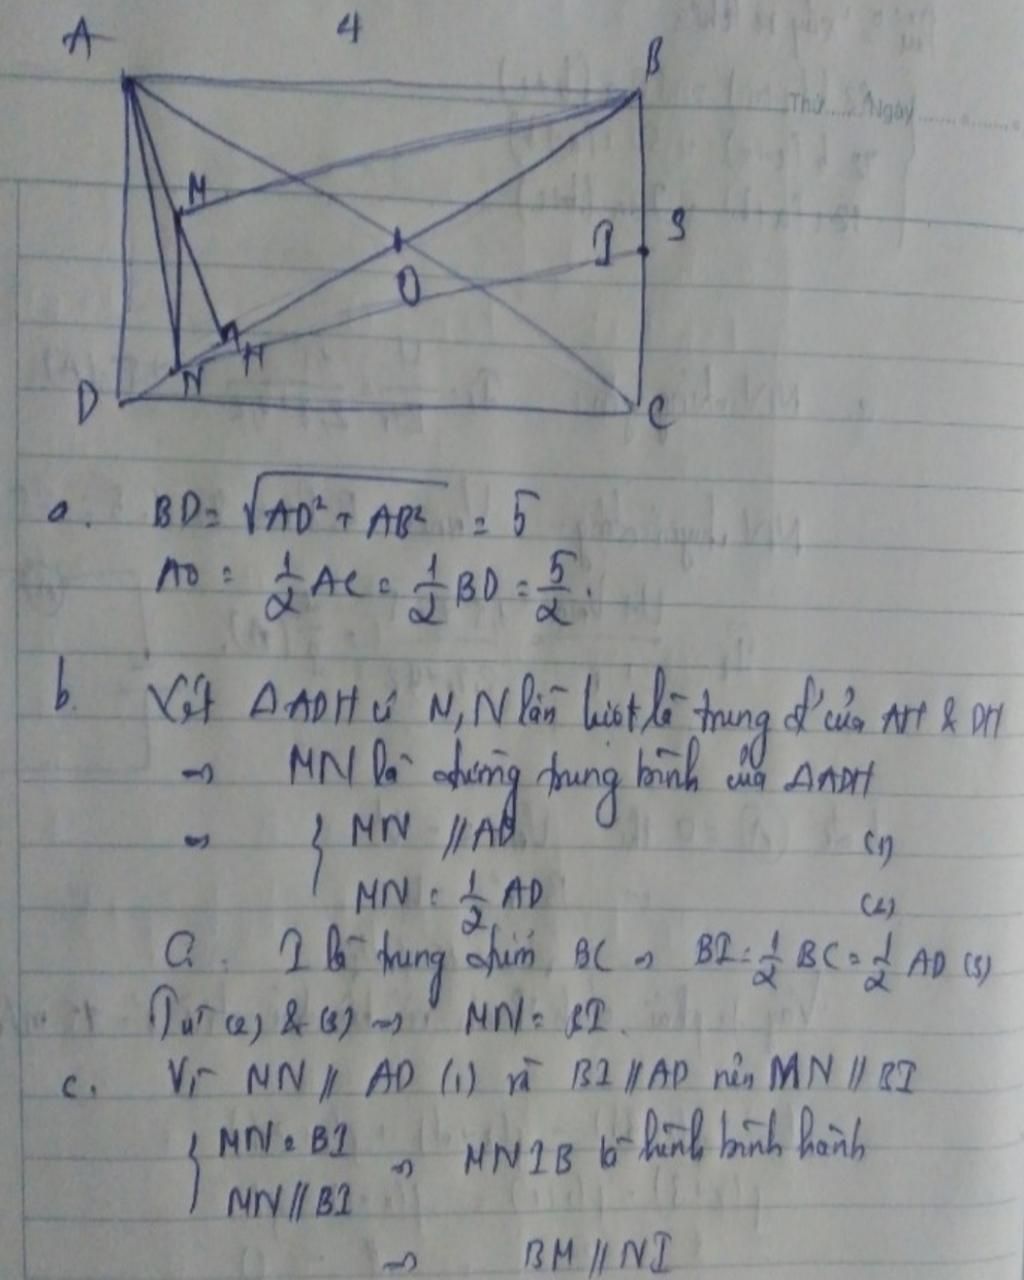 A 4 B
Thứ.....Ngày..................
M
I 3
O
N H
D C
a. BD = √AD² + AB² = 5
AO = 1/2 AC = 1/2 BD = 5/2.
b. Xét ΔADH có M, N lần lượt là trung đ' của AH & DH
⇒ MN là đường trung bình của ΔADH
⇒ { MN // AD (1)
MN = 1/2 AD (2)
Có I là trung điểm BC ⇒ BI = 1/2 BC = 1/2 AD (3)
Từ (2) & (3) ⇒ MN = BI.
c. Vì MN // AD (1) và BI // AD nên MN // BI
{ MN = BI
MN // BI ⇒ MNIB là hình bình hành
⇒ BM // NI